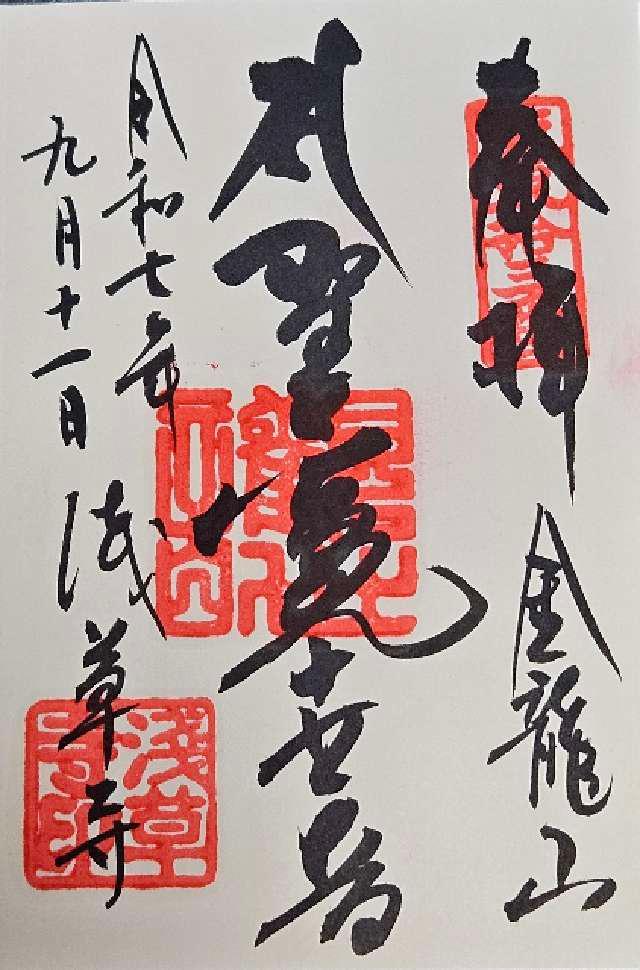 奉拝
金龍山
聖観世音
令和七年
九月十一日
浅草寺
浅草寺印